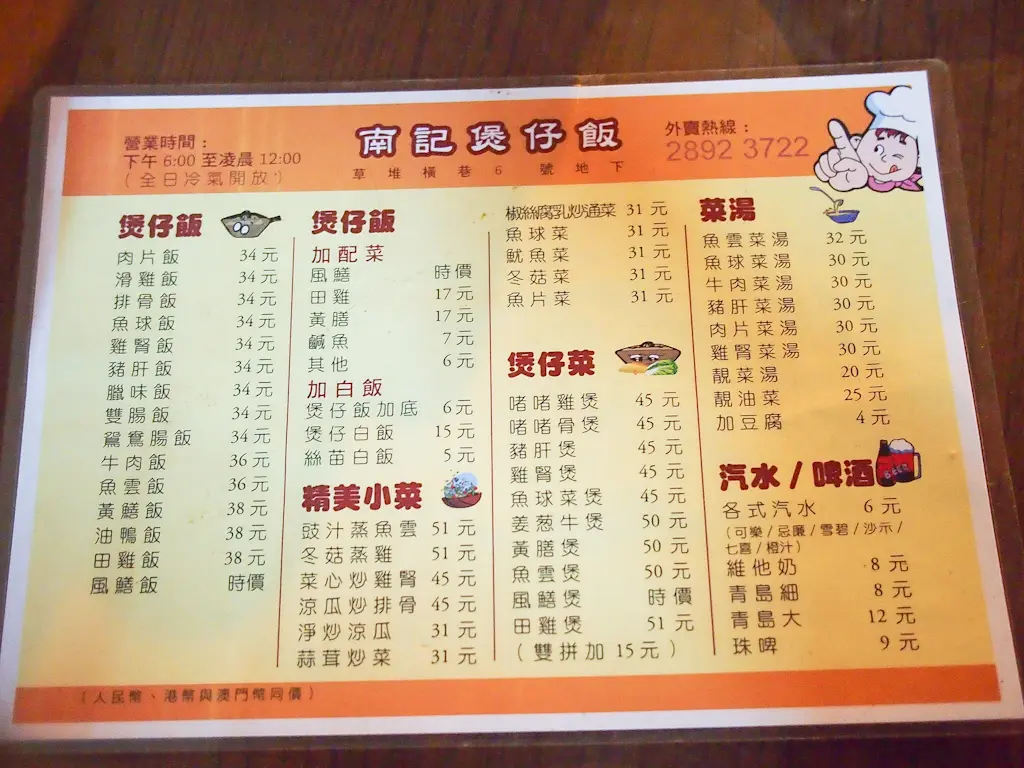 營業時間：
下午 6:00 至凌晨 12:00
（全日冷氣開放）
南記煲仔飯
草堆橫巷6號地下
外賣熱線：
2892 3722
煲仔飯
肉片飯 34 元
滑雞飯 34 元
排骨飯 34 元
魚球飯 34 元
雞腎飯 34 元
豬肝飯 34 元
臘味飯 34 元
雙腸飯 34 元
鴛鴦腸飯 34 元
牛肉飯 36 元
魚雲飯 36 元
黃鱔飯 38 元
油鴨飯 38 元
田雞飯 38 元
風鱔飯 時價
煲仔飯
加配菜
風鱔 時價
田雞 17 元
黃膳 17 元
鹹魚 7 元
其他 6 元
加白飯
煲仔飯加底 6元
煲仔白飯 15 元
絲苗白飯 5 元
精美小菜
豉汁蒸魚雲 51 元
冬菇蒸雞 51 元
菜心炒雞腎 45 元
涼瓜炒排骨 45 元
淨炒涼瓜 31 元
蒜茸炒菜 31 元
椒絲腐乳炒通菜 31 元
魚球菜 31 元
魷魚菜 31 元
冬菇菜 31 元
魚片菜 31 元
煲仔菜
啫啫雞煲 45 元
啫啫骨煲 45 元
豬肝煲 45 元
雞腎煲 45 元
魚球菜煲 45 元
姜葱牛煲 50 元
黃膳煲 50 元
魚雲煲 50 元
風鱔煲 時價
田雞煲 51 元
（雙拼加 15元）
菜湯
魚雲菜湯 32 元
魚球菜湯 30 元
牛肉菜湯 30 元
豬肝菜湯 30 元
肉片菜湯 30 元
雞腎菜湯 30 元
靚菜湯 20 元
靚油菜 25 元
加豆腐 4 元
汽水 / 啤酒
各式汽水 6 元
（可樂 / 忌廉 / 雪碧 / 沙示 /
七喜 / 橙汁）
維他奶 8 元
青島細 8 元
青島大 12 元
珠啤 9 元
（人民幣、港幣與澳門幣同價）